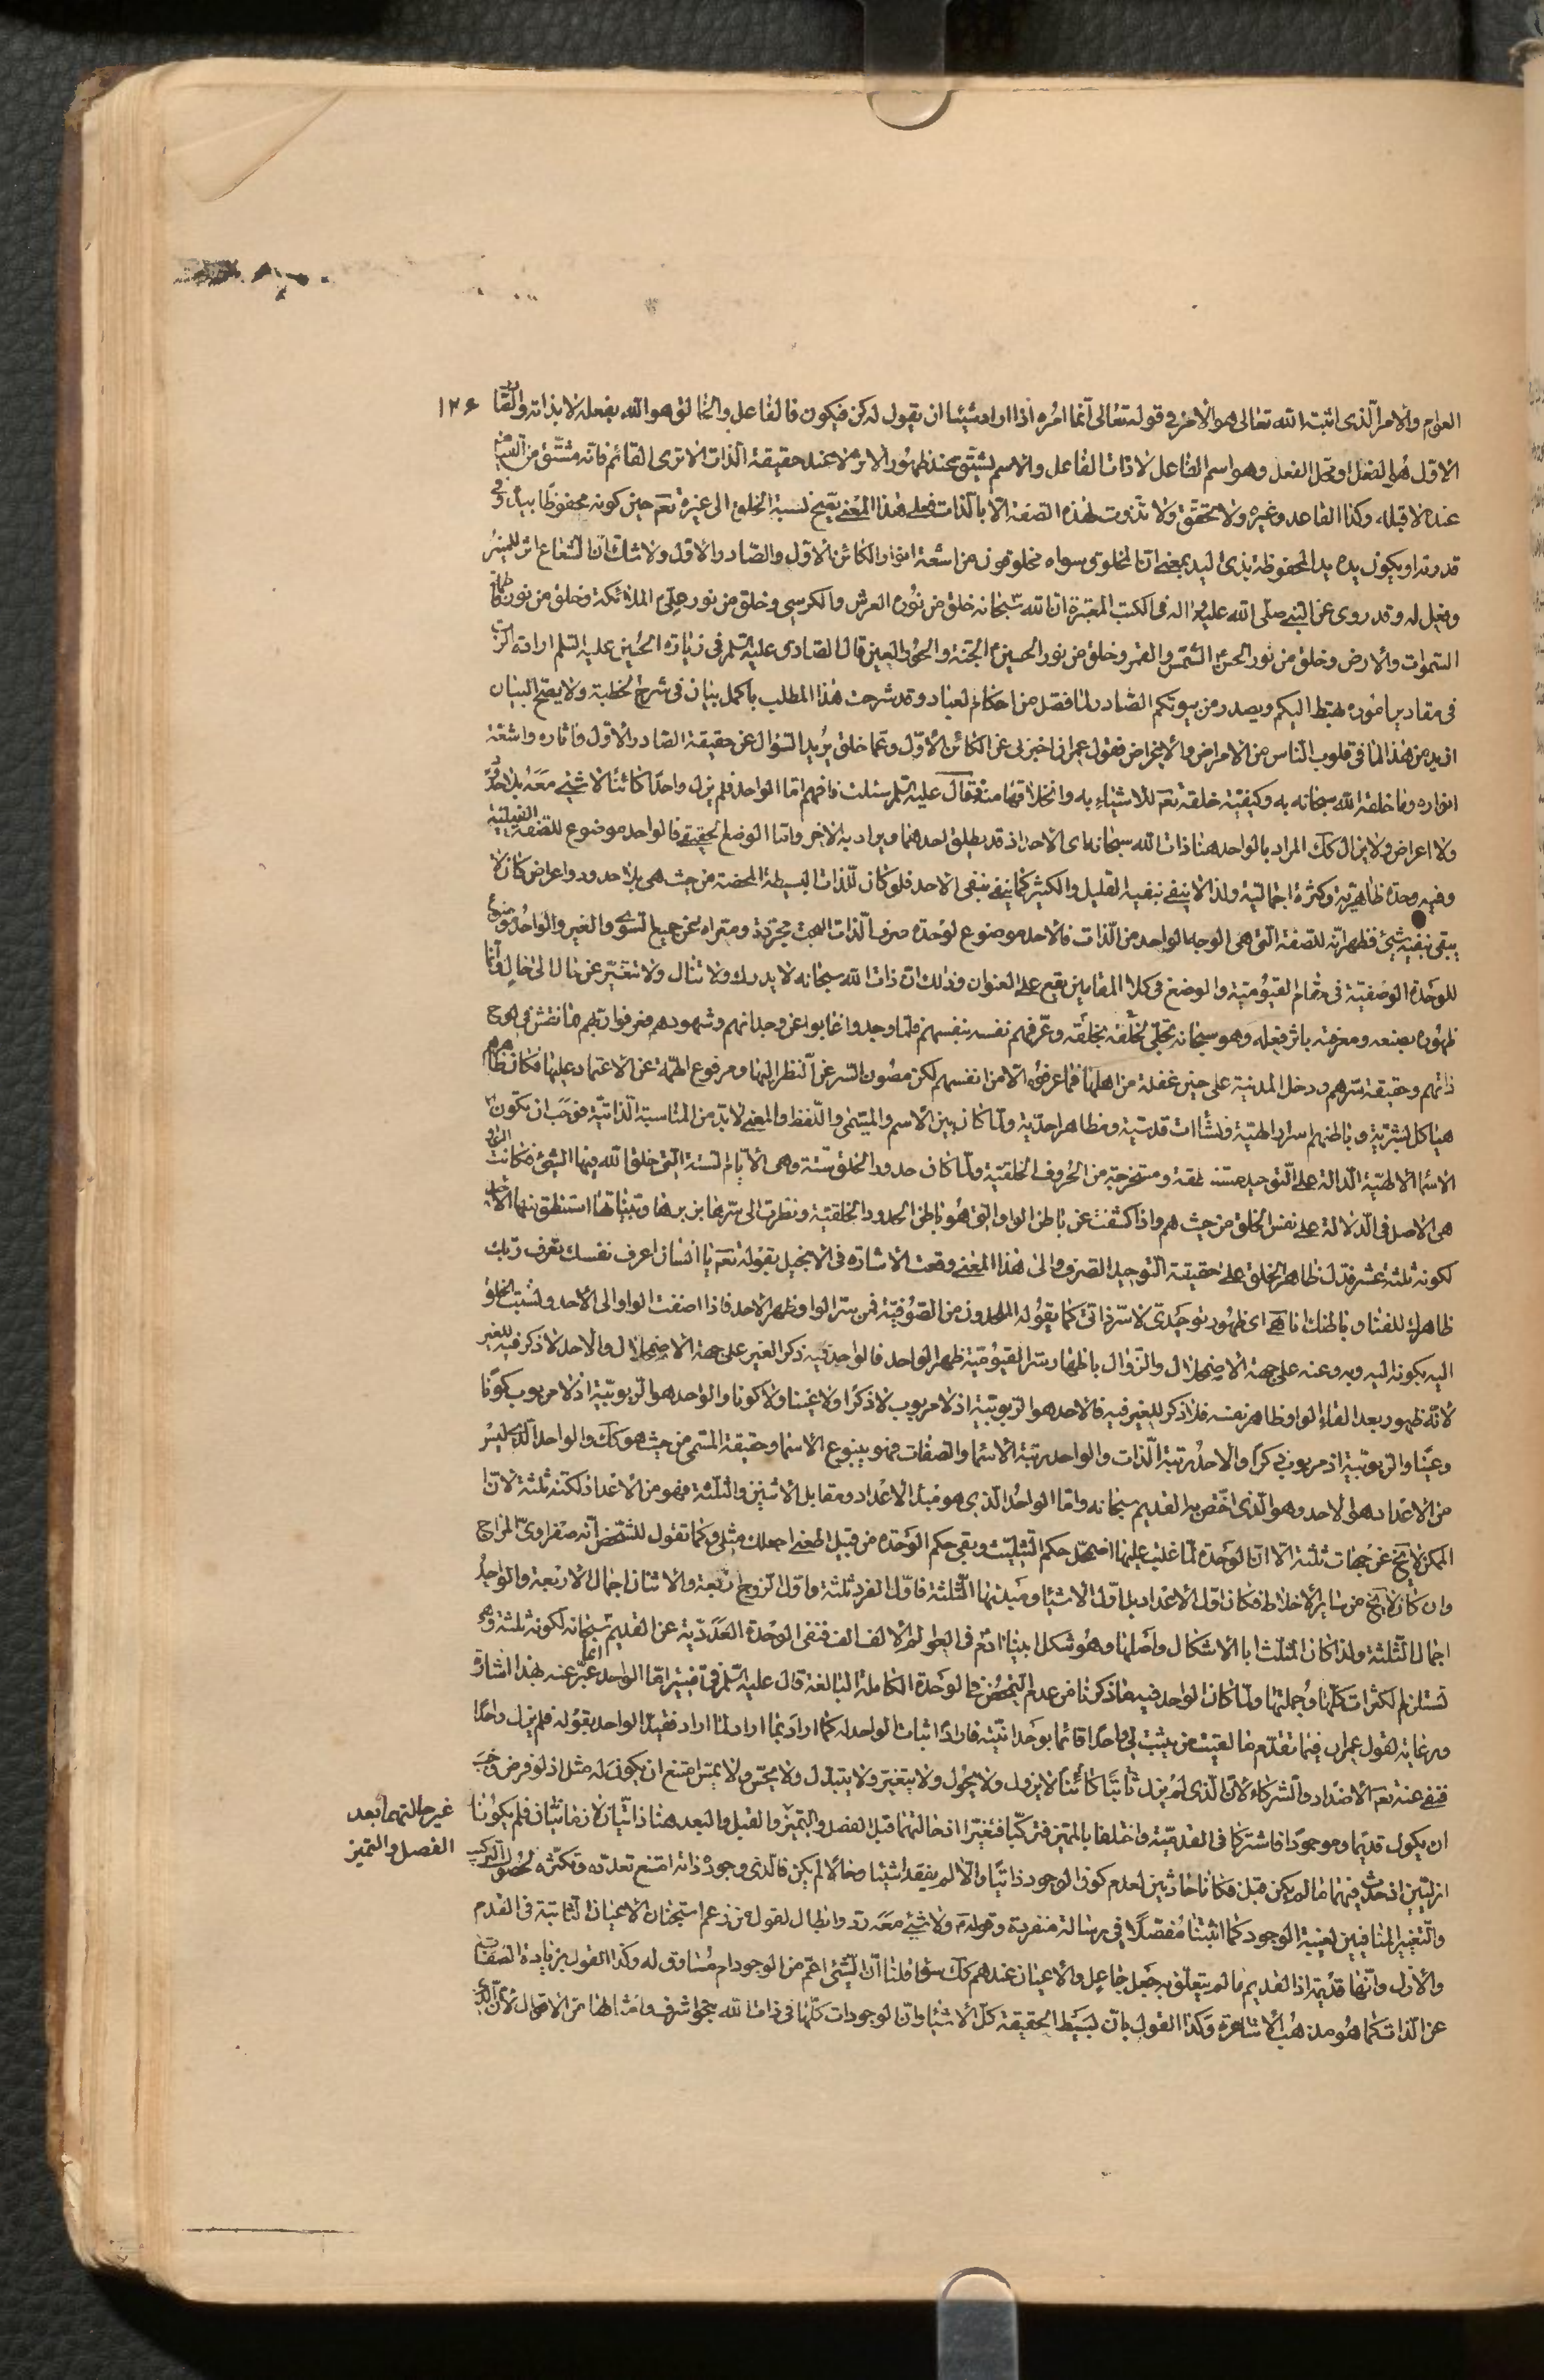 ١٢٦
العوام والامر الّذى اثبته الله تعالى هو الامر فى قوله تعالى انّما امره اذا اراد شيئا ان يقول له كن فيكون فالفاعل والخالق هو الله بفعله لا بذاته والصّادر
الاوّل هو الفعل او محل الفعل وهو اسم الفاعل لا ذات الفاعل والاسم يشتق عند ظهور الاثر لا عند حقيقة الذات الا ترى القائم فانّه مشتق من القيام
عنده لا قبله وكذا القاعد وغيره ولا تحقّق ولا تذوّت لهذه الصّفة الّا بالذات فعلى هذا المعنى يصحّ نسبة الخلق الى غيره تعم حين كونه محفوظًا بيد
قدرته او يكون يده يد المحفوظة بذى اليد بمعنى انّ المخلوق سواه مخلوقون من اشعّة انوار الكائن الاوّل والصّادر الاوّل ولا شكّ انّ الشعاع اثر للمنير
وفعل له وقد روى عن النبى صلّى الله عليه واله فى الكتب المعتبرة ان الله سبحانه خلق من نوره العرش والكرسى وخلق من نور علىّ الملائكة وخلق من نور فاطمة
السّموات والارض وخلق من نور الحسن الشمس والقمر وخلق من نور الحسين الجنّة والحور العين قال الصّادق عليه السّلم فى زيارة الحسين عليه السّلم ارادة الربّ
فى مقادير اموره تهبط اليكم ويصدر من بيوتكم الصّادر لما فصل من احكام العباد وقد شرحت هذا المطلب باكمل بيان فى شرح الخطبة ولا يصحّ البيان
ازيد من هذا لما فى قلوب الناس من الامراض والاغراض فقول عمران اخبرنى عن الكائن الاوّل وعمّا خلق يريد السّؤال عن حقيقة الصّادر الاوّل واثاره واشعّة
انواره وما خلقه الله سبحانه به وكيفيّة خلقه تعم للاشياء به وانخلاقها منه فقال عليه السّلم سئلت فافهم امّا الواحد فلم يزل واحدًا كائنًا لا شىء معه بلا حدود
ولا اعراض ولا يزال كك المراد بالواحد هنا ذات الله سبحانه اى الاحد اذ قد يطلق احدهما ويراد به الاخر وامّا الوضع الحقيقى فالواحد موضوع للصّفة الفعليّة
وفيه وحدة ظاهريّة وكثرة اجماليّة ولذا لا ينفى بنفيه القليل والكثير كما ينفى بنفى الاحد فلو كان للذات البسيطة المحضة من حيث هى بلا حدود واعراض كان لا
يبقى بنفيه شىء فظهر انّه للصّفة الّتى هى الوجه الواحد من الذات فالاحد موضوع لوحدة صرف الذات البحت مجرّدة ومعراة عن جميع السّوى والغير والواحد موضوع
للوحدة الوصفيّة فى مقام القيّوميّة والوضع فى كلا المقامين يقع على العنوان وذلك انّ ذات الله سبحانه لا يدرك ولا تنال ولا تتغيّر عن حال الى حال وانّما
ظهوره بصنعه ومعرفته باثر فعله وهو سبحانه تجلّى لخلقه بخلقه وعرّفهم نفسه بنفسهم فلمّا وجدوا غابوا عن وجدانهم وشهودهم فعرفوا ربّهم بما نقش فى لوح
ذاتهم وحقيقة سرّهم ودخل المدينة على حين غفلة من اهلها فما عرفوه الّا من انفسهم لكن مصون السّر عن النظر اليها ومرفوع الهمّة عن الاعتماد عليها فكان ظاهرهم
هياكل بشريّة وباطنهم اسرار الهيّة ونشئات قدسيّة ومظاهر احديّة ولمّا كان بين الاسم والمسمّى واللّفظ والمعنى لا بدّ من المناسبة الذاتيّة فوجب ان يكون
الاسماء الالهيّة الدالة على التوحيد مستنطقة ومستخرجة من الحروف الخلقيّة ولمّا كان حدود الخلق ستّة وهى الايّام الستّة الّتى خلق الله فيها الشىء فكانت الواو
هى الاصل فى الدّلالة على نفس الخلق من حيث هم واذا كشفت عن باطن الواو الّتى هو باطن الحدود الخلقيّة ونظرت الى سرّها بزبرها وبيّناتها استنطق منها الاحد
لكونه ثلثة عشر فدلّ ظاهر الخلق على حقيقة التوحيد الصّرف والى هذا المعنى وقعت الاشارة فى الانجيل بقوله تعم يا انسان اعرف نفسك تعرف ربّك
ظاهرك للفناء وباطنك انا هى اى ظهور توحيدى لا سرّ ذاتى كما يقوله الملحدون من الصّوفيّة فمن سرّ الواو ظهر الاحد فاذا اضفت الواو الى الاحد ونسبت الخلق
اليه بكونه اليه وبه وعنه على جهة الاضمحلال والزّوال باظهار سرّ القيّوميّة ظهر الواحد فالواحد فيه ذكر الغير على جهة الاضمحلال والاحد لا ذكر فيه للغير
لانّه ظهور بعد القاء الواو ظاهر بنفسه فلا ذكر للغير فيه فالاحد هو الربوبيّة اذ لا مربوب لا ذكرًا ولا عينا ولا كونا والواحد هو الربوبيّة اذ لا مربوب كونًا
وعينًا والربوبيّة اذ مربوب ذكرًا والاحد مرتبة الذات والواحد مرتبة الاسماء والصفات فهو ينبوع الاسماء وحقيقة المسمّى من حيث هو كك والواحد الّذى ليس
من الاعداد هو الاحد وهو الّذى اختصّ به القديم سبحانه وامّا الواحد الّذى هو مبدء الاعداد ومقابل الاثنين والثلثة فهو من الاعداد لكنّه ثلثة لانّ
الممكن لا يخ عن جهات ثلثة الّا انّ الوحدة لمّا غلبت عليها اضمحلّ حكم التثليث وبقى حكم الوحدة من قبيل اطعنى اجعلك مثلى وكما تقول للشخص انّه صفراوىّ المزاج
وان كان لا يخ من ساير الاخلاط فكان اوّل الاعداد بل اوّل الاشياء ومبدئها الثلثة فاوّل الفرد ثلثة واوّل الزوج اربعة والاثنان اجمال الاربعة والواحد
اجمال الثلثة ولذا كان المثلث ابا الاشكال واصلها وهو شكل ابينا ادم فى العوالم الالف الف فنفى الوحدة العدديّة عن القديم سبحانه لكونه ثلثة وهى
تستلزم الكثرات كلّها وجملتها ولمّا كان الواحد فيه ما ذكرنا من عدم التمحّض فى الوحدة الكاملة البالغة قال عليه السّلم فى تفسير امّا الواحد انّما عبّر عنه بهذا اشارة
ورعاية لقول عمران فيما تقدّم ما لقيت من يثبت لى واحدًا قائما بوحدانيّته فارادّ اثبات الواحد له كما اراد بما اراد لما اراد فقيّد الواحد بقوله فلم يزل واحدًا
فنفى عنه تعم الاضداد والشركاء لانّ الّذى لم يزل ثابتًا كائنًا لا يزول ولا يحول ولا يتغيّر ولا يتبدّل ولا يحسّ ولا يمسّ امتنع ان يكون له مثل اذ لو فرض وجب
ان يكون قديمًا وموجودًا فاشتركا فى القدميّة واختلفا بالمميّز فتركّبا فتغيّرا اذ حالتهما قبل الفصل والتميّز والقبل والبعد هنا ذاتيّان لا زمانيّان فلم يكونا
غير حالتهما بعد
الفصل والتميز
ازليّين اذ حدث فيهما ما لم يكن قبل فكانا حادثين لعدم كون الوجود ذاتيًّا والّا لم يفقدا شيئا وحالا لم يكن فالّذى وجوده ذاته امتنع تعدّده وتكثّره لحصول التركيب
والتغيير المنافيين لعينية الوجود كما اثبتنا مفصّلا فى رسالة منفردة وقوله م ولا شىء معه ردّ وابطال لقول من زعم استجنان الاعيان الثابتة فى القدم
والازل وانّها قديمة اذ القديم ما لم يتعلّق به جعل جاعل والاعيان عندهم كك سواء قلنا انّ الشىء اعمّ من الوجود ام مساوق له وكذا القول بزيادة الصّفات
عن الذات كما هو مذهب الاشاعرة وكذا القول بانّ بسيط الحقيقة كلّ الاشياء وانّ الوجودات كلّها فى ذات الله بنحو اشرف وامثالها من الاقوال لانّ الّذى